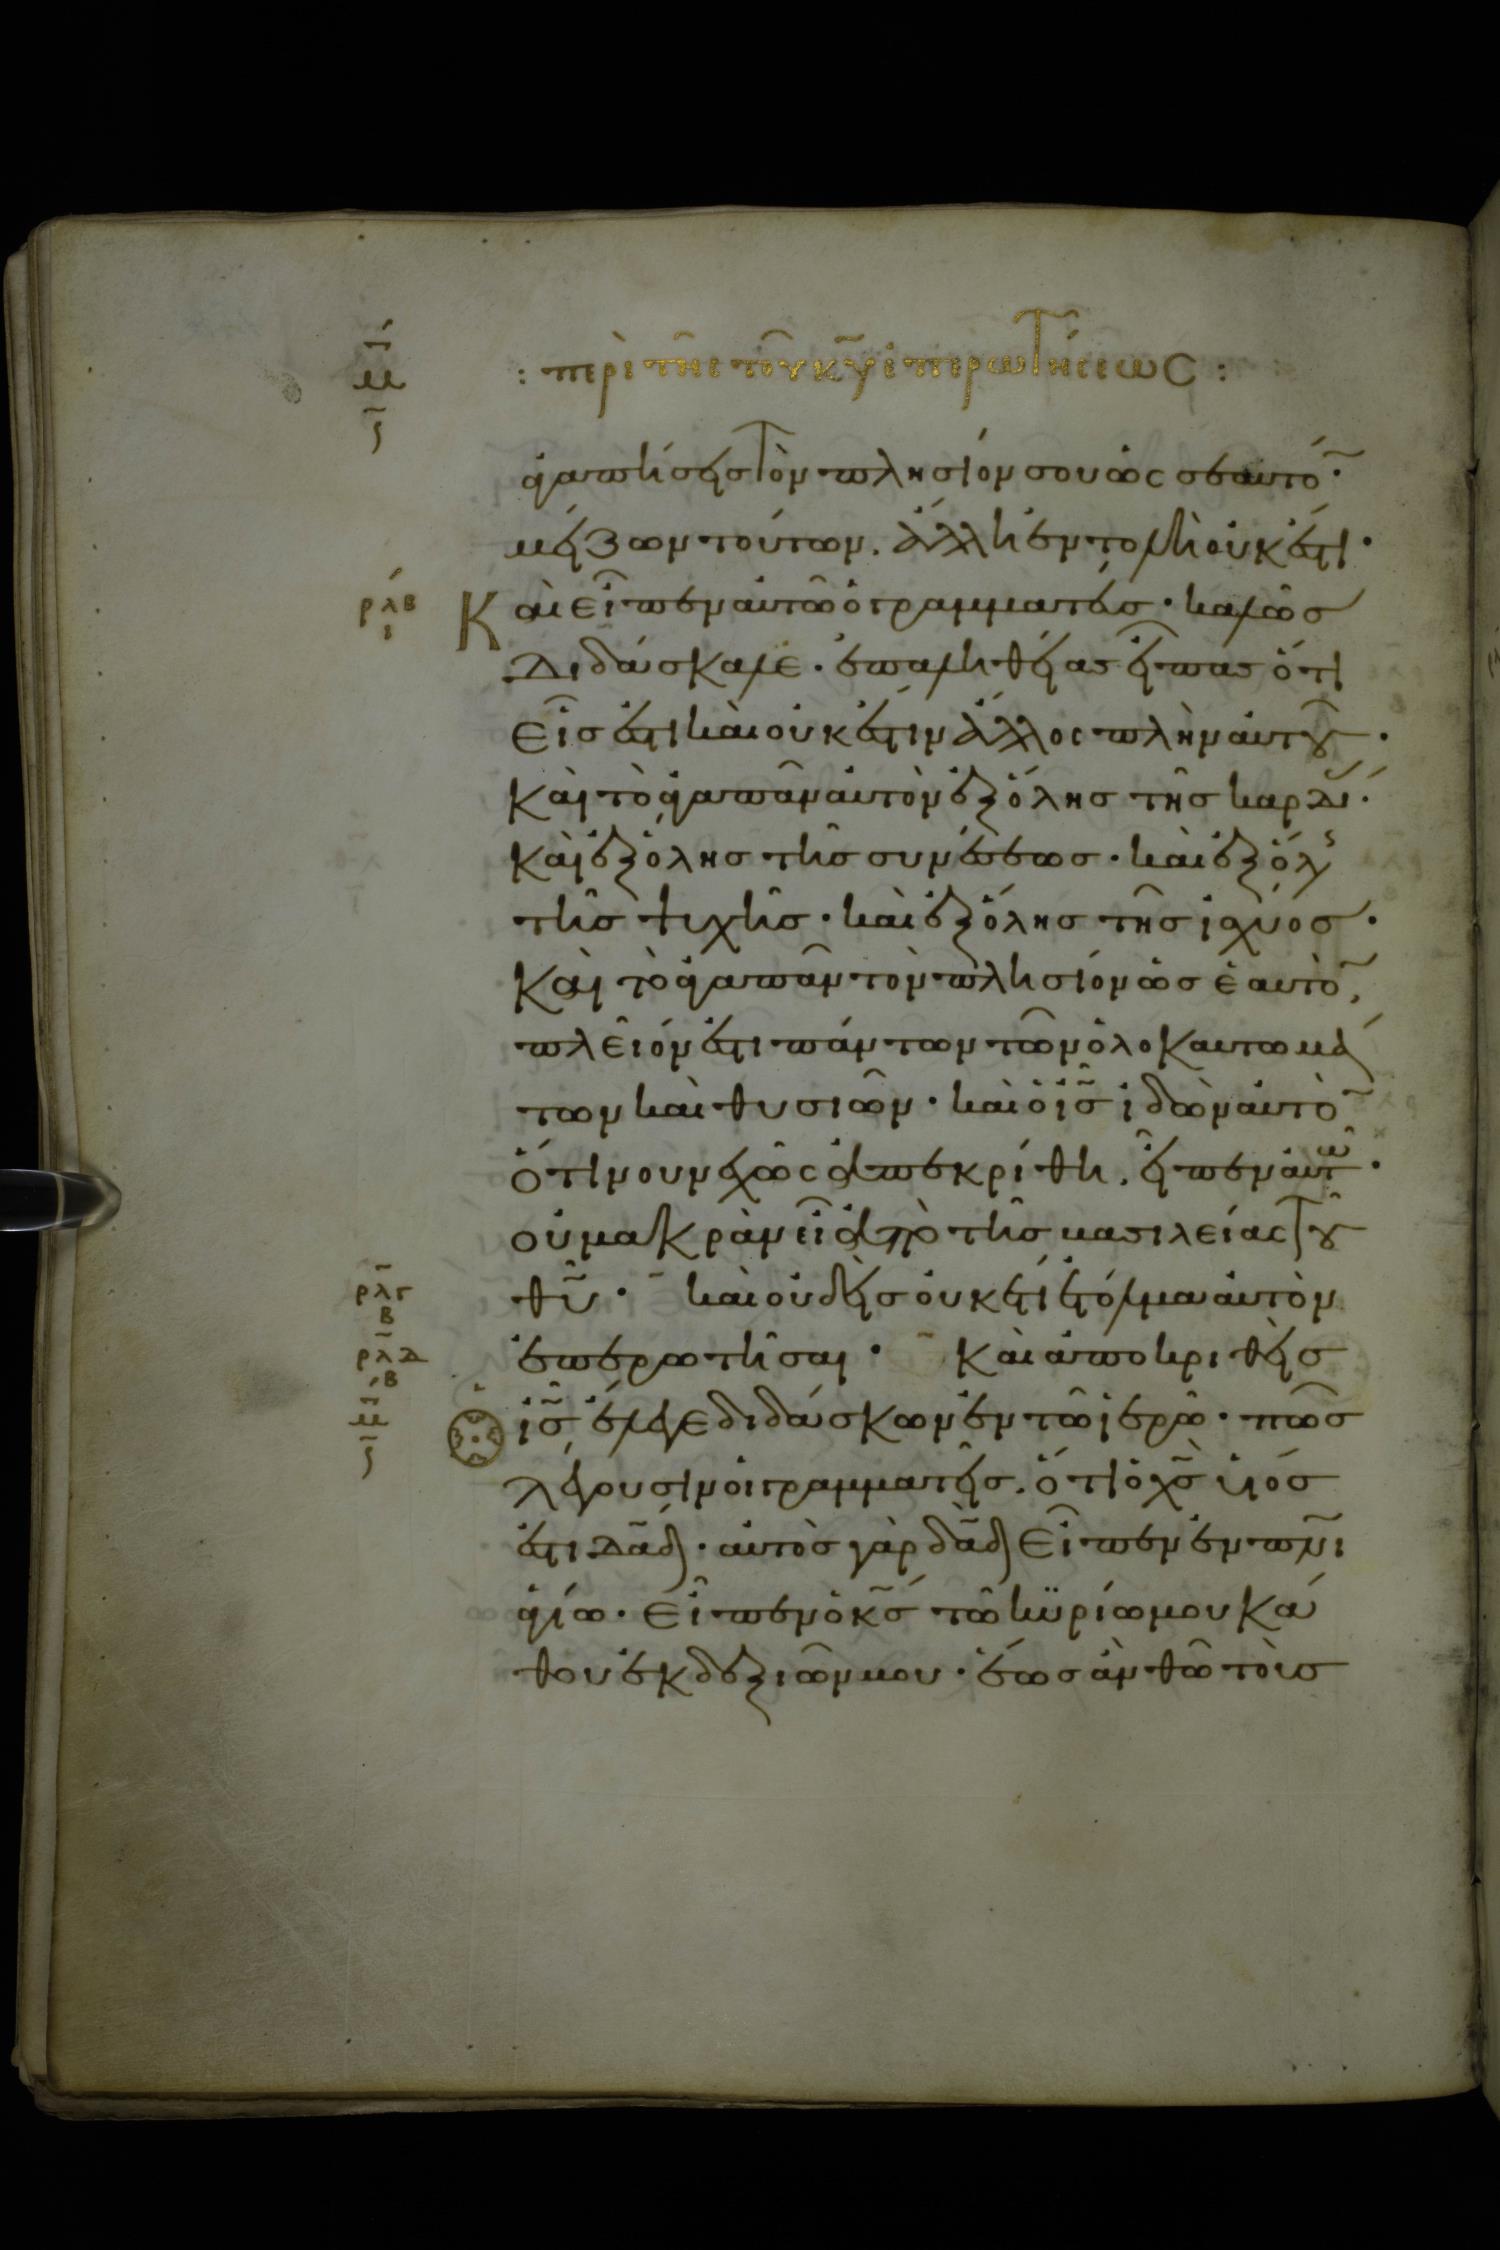 μ̄
ϛ̄
: περὶ τῆς τοῦ κ̅υ̅ ἐπερωτήσεως :
ἀγαπήσεις τὸν πλησίον σου ὡς σεαυτό̅ ·
μείζων τούτων. ἄλλη ἐντολὴ οὐκ ἔστι ·
ρλβ
ι
Καὶ εἶπεν αὐτῶ ὁ γραμματεύς · καλῶς
διδάσκαλε · ἐπ' ἀληθείας εἶπας ὅτι
εἷς ἐστι καὶ οὐκ ἔστιν ἄλλος πλὴν αὐτοῦ ·
καὶ τὸ ἀγαπᾶν αὐτὸν ἐξ ὅλης τῆς καρδί ·
καὶ ἐξ ὅλης τῆς συνέσεως · καὶ ἐξ ὅλης
τῆς ψυχῆς · καὶ ἐξ ὅλης τῆς ἰσχύος ·
καὶ τὸ ἀγαπᾶν τὸν πλησίον ὡς ἑαυτὸ̅,
πλεῖόν ἐστι πάντων τῶν ὁλοκαυτωμά
των καὶ θυσιῶν · καὶ ὁ ι̅ς̅ ἰδὼν αὐτὸ̅
ὅτι νουνεχῶς ἀπεκρίθη, εἶπεν αὐτῶ ·
οὐ μακρὰν εἶ ἀπὸ τῆς βασιλείας τοῦ
ρλγ
β
θ̅υ̅ · καὶ οὐδεὶς οὐκέτι ἐτόλμα αὐτὸν
ρλδ
β
ἐπερωτῆσαι · καὶ ἀποκριθεὶς
μ̄
ϛ̄
ι̅ς̅ ἔλεγε διδάσκων ἐν τῶ ἱερῶ · πῶς
λέγουσιν οἱ γραμματεῖς, ὅτι ὁ χ̅ς̅ υἱός
ἐστι δ̅α̅δ̅ · αὐτὸς γὰρ δ̅α̅δ̅ εἶπεν ἐν π̅ν̅ι̅
ἁγίω · εἶπεν ὁ κ̅ς̅ τῶ κϋρίω μου κά
θου ἐκ δεξιῶν μου · ἕως ἂν θῶ τοὺς